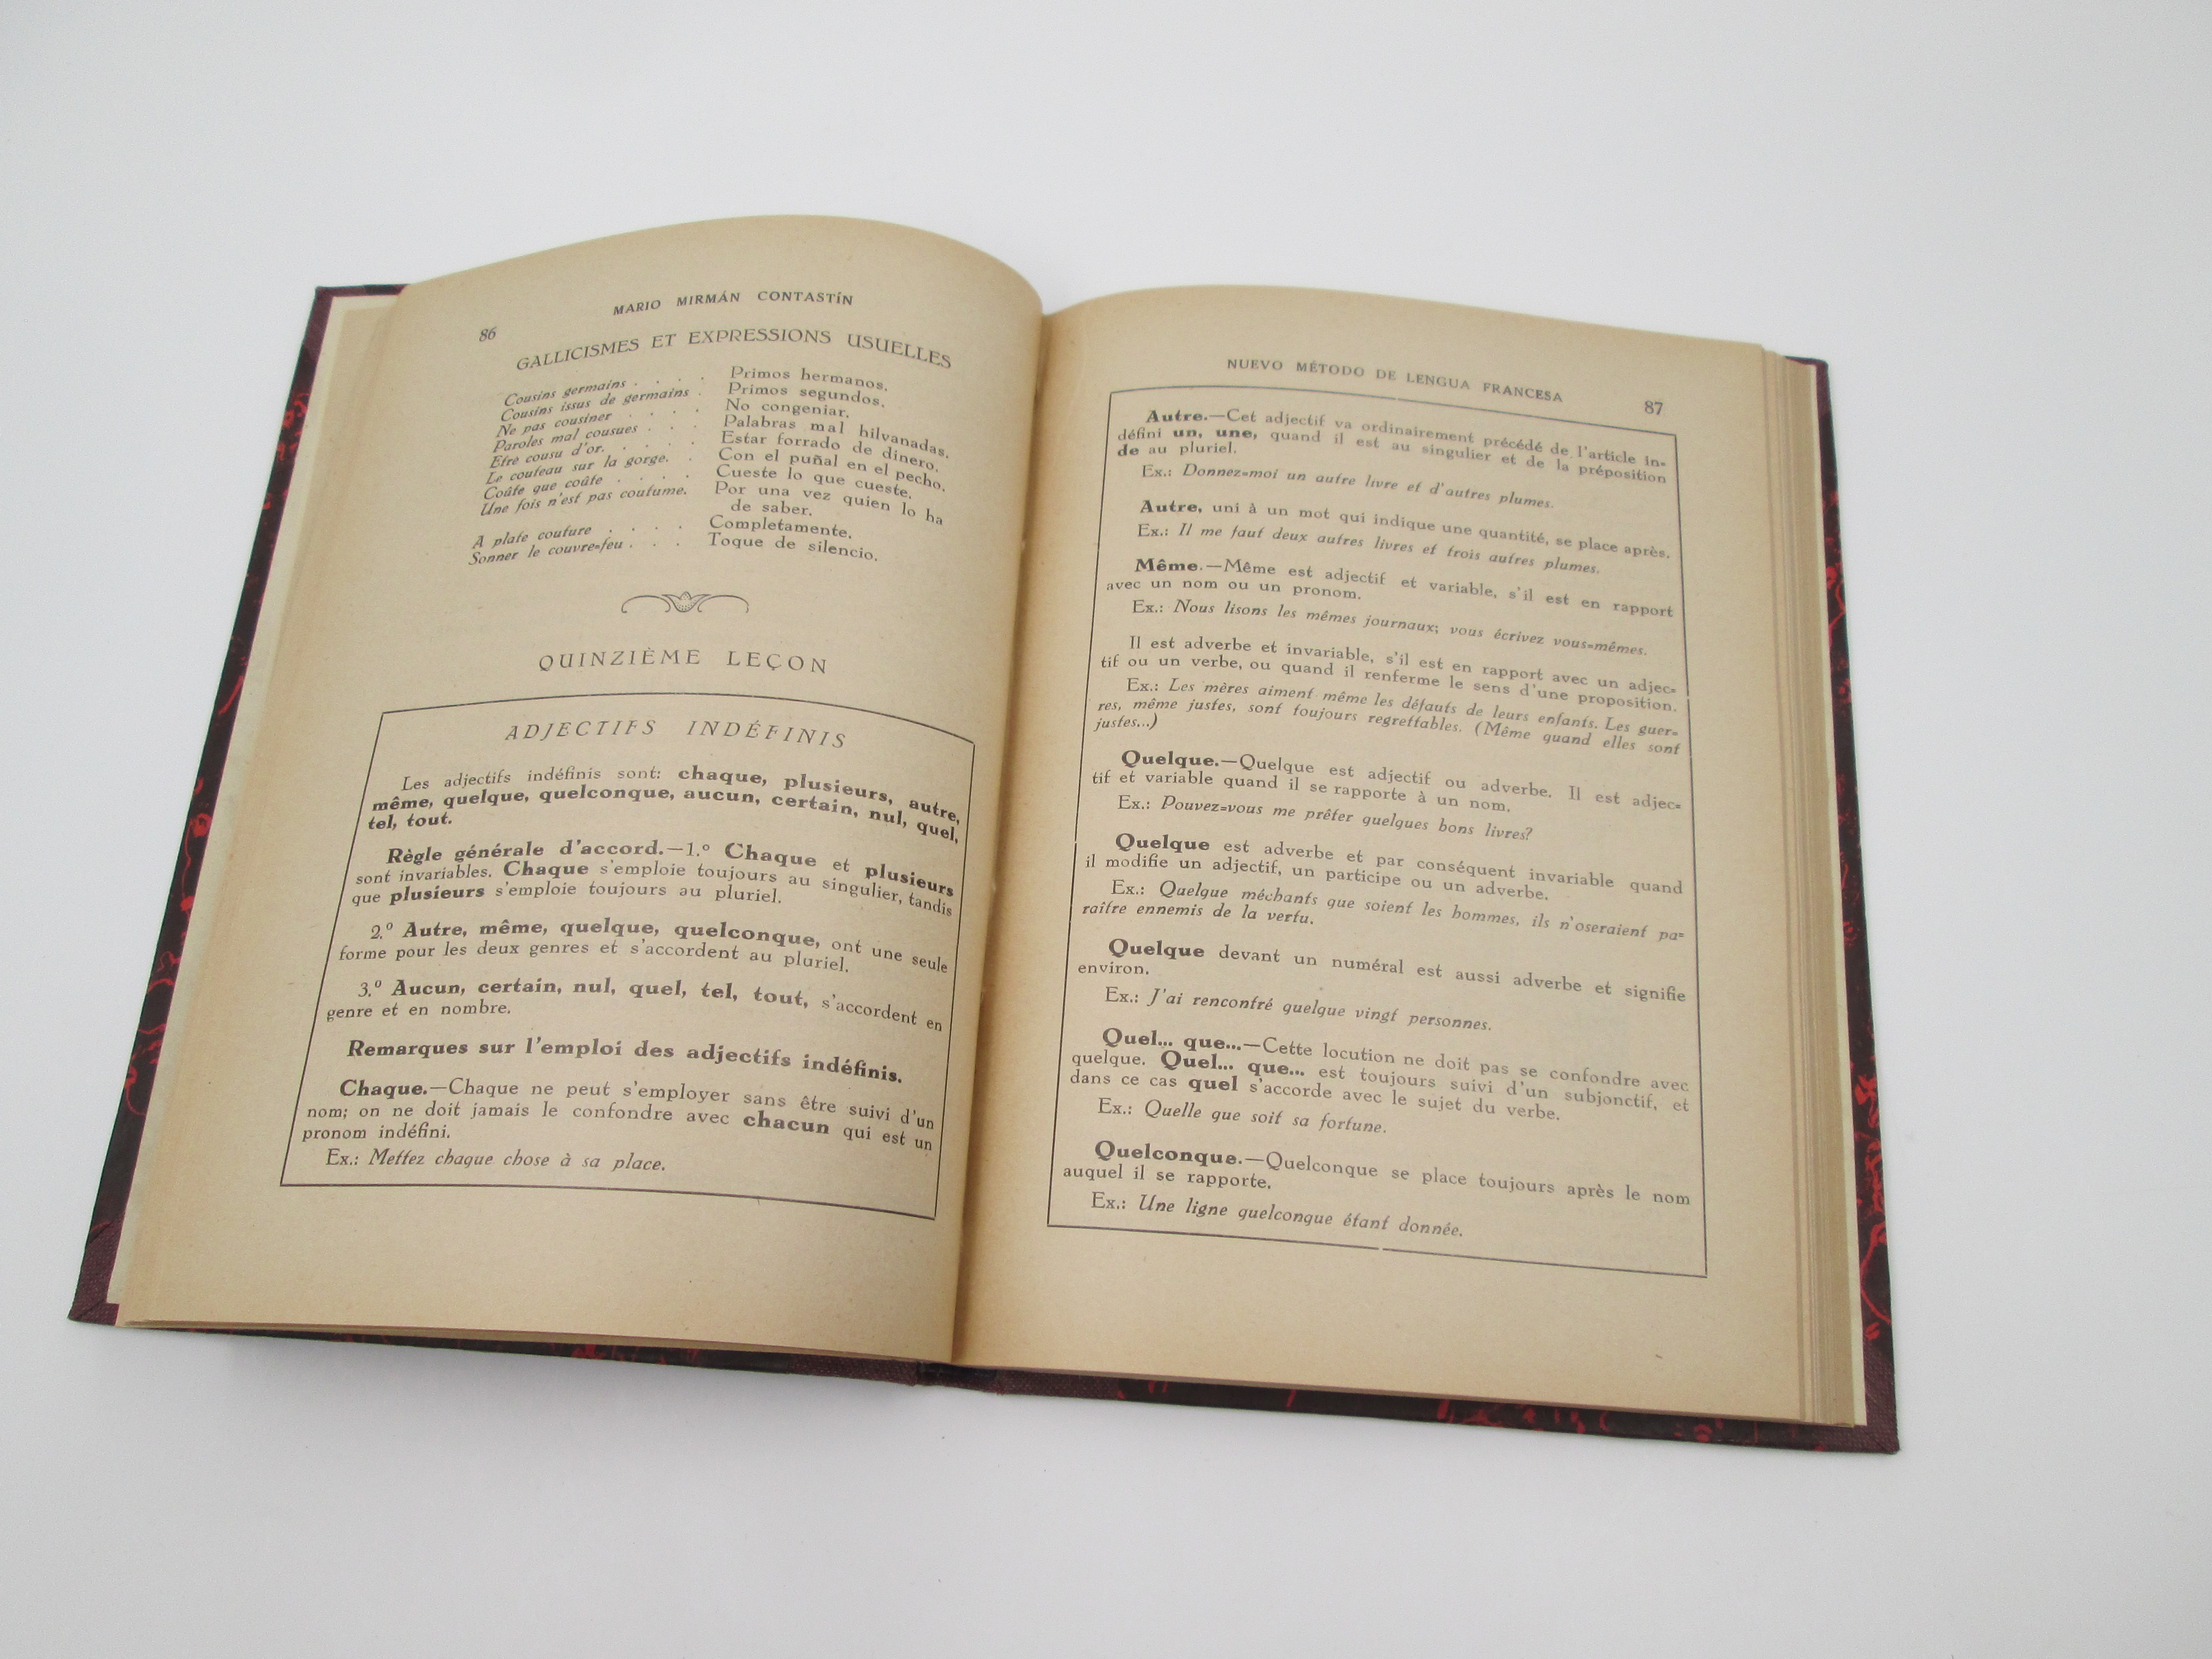 86
MARIO MIRMÁN CONTASTÍN
GALLICISMES ET EXPRESSIONS USUELLES
Cousins germains . . . . Primos hermanos.
Cousins issus de germains . Primos segundos.
Ne pas cousiner . . . . No congeniar.
Paroles mal cousues . . . Palabras mal hilvanadas.
Etre cousu d'or. . . . . Estar forrado de dinero.
Le couteau sur la gorge. . Con el puñal en el pecho.
Coûte que coûte . . . . Cueste lo que cueste.
Une fois n'est pas coutume. Por una vez quien lo ha
de saber.
A plate couture . . . . Completamente.
Sonner le couvre-feu . . . Toque de silencio.
QUINZIÈME LEÇON
ADJECTIFS INDÉFINIS
Les adjectifs indéfinis sont: chaque, plusieurs, autre,
même, quelque, quelconque, aucun, certain, nul, quel,
tel, tout.
Règle générale d'accord.—1.º Chaque et plusieurs
sont invariables. Chaque s'emploie toujours au singulier, tandis
que plusieurs s'emploie toujours au pluriel.
2.º Autre, même, quelque, quelconque, ont une seule
forme pour les deux genres et s'accordent au pluriel.
3.º Aucun, certain, nul, quel, tel, tout, s'accordent en
genre et en nombre.
Remarques sur l'emploi des adjectifs indéfinis.
Chaque.—Chaque ne peut s'employer sans être suivi d'un
nom; on ne doit jamais le confondre avec chacun qui est un
pronom indéfini.
Ex.: Mettez chaque chose à sa place.
NUEVO MÉTODO DE LENGUA FRANCESA
87
Autre.—Cet adjectif va ordinairement précédé de l'article in-
défini un, une, quand il est au singulier et de la préposition
de au pluriel.
Ex.: Donnez-moi un autre livre et d'autres plumes.
Autre, uni à un mot qui indique une quantité, se place après.
Ex.: Il me faut deux autres livres et trois autres plumes.
Même.—Même est adjectif et variable, s'il est en rapport
avec un nom ou un pronom.
Ex.: Nous lisons les mêmes journaux; vous écrivez vous-mêmes.
Il est adverbe et invariable, s'il est en rapport avec un adjec-
tif ou un verbe, ou quand il renferme le sens d'une proposition.
Ex.: Les mères aiment même les défauts de leurs enfants. Les guer-
res, même justes, sont toujours regrettables. (Même quand elles sont
justes...)
Quelque.—Quelque est adjectif ou adverbe. Il est adjec-
tif et variable quand il se rapporte à un nom.
Ex.: Pouvez-vous me prêter quelques bons livres?
Quelque est adverbe et par conséquent invariable quand
il modifie un adjectif, un participe ou un adverbe.
Ex.: Quelque méchants que soient les hommes, ils n'oseraient pa-
raître ennemis de la vertu.
Quelque devant un numéral est aussi adverbe et signifie
environ.
Ex.: J'ai rencontré quelque vingt personnes.
Quel... que...—Cette locution ne doit pas se confondre avec
quelque. Quel... que... est toujours suivi d'un subjonctif, et
dans ce cas quel s'accorde avec le sujet du verbe.
Ex.: Quelle que soit sa fortune.
Quelconque.—Quelconque se place toujours après le nom
auquel il se rapporte.
Ex.: Une ligne quelconque étant donnée.